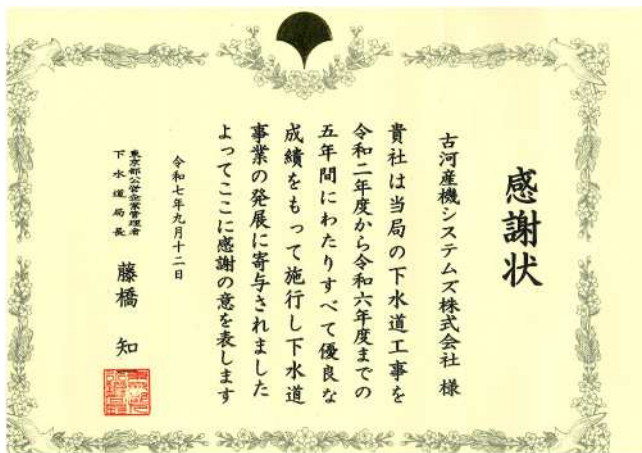 感謝状
古河産機システムズ株式会社 様
貴社は当局の下水道工事を
令和二年度から令和六年度までの
五年間にわたりすべて優良な
成績をもって施行し下水道
事業の発展に寄与されました
よってここに感謝の意を表します
令和七年九月十二日
東京都公営企業管理者
下水道局長
藤橋 知